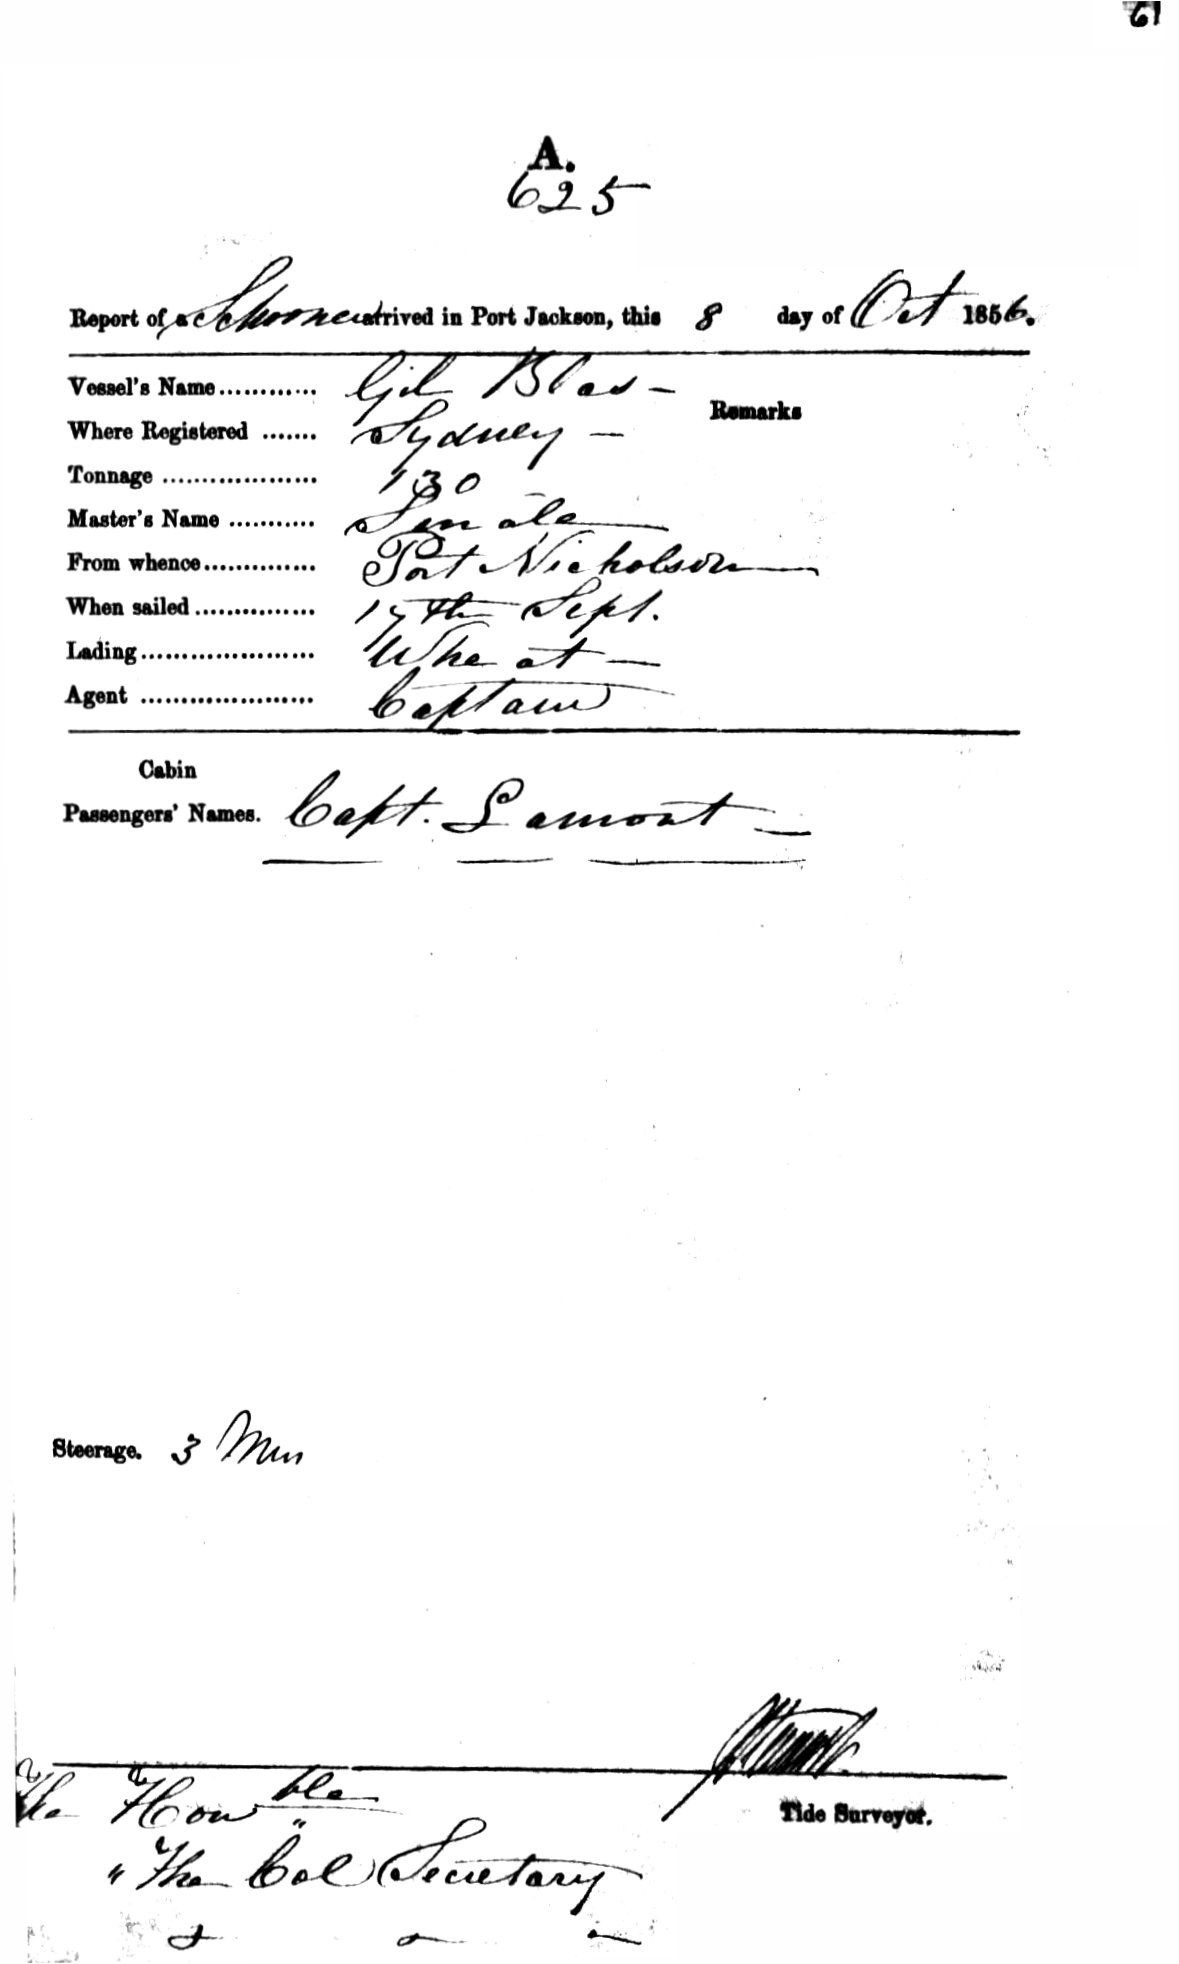 61
A.
625
Report of a Schooner arrived in Port Jackson, this 8 day of Oct 1856.
Vessel's Name ............ Gil Blas -
Remarks
Where Registered ....... Sydney -
Tonnage ................... 130
Master's Name ...........
From whence .............. Port Nicholson
When sailed ............... 17th Sept.
Lading ...................... Wheat -
Agent ...................... Captain
Cabin
Passengers' Names. Capt. Lamont -
Steerage. 3 Men
The Honble
" The Col Secretary
Tide Surveyor.